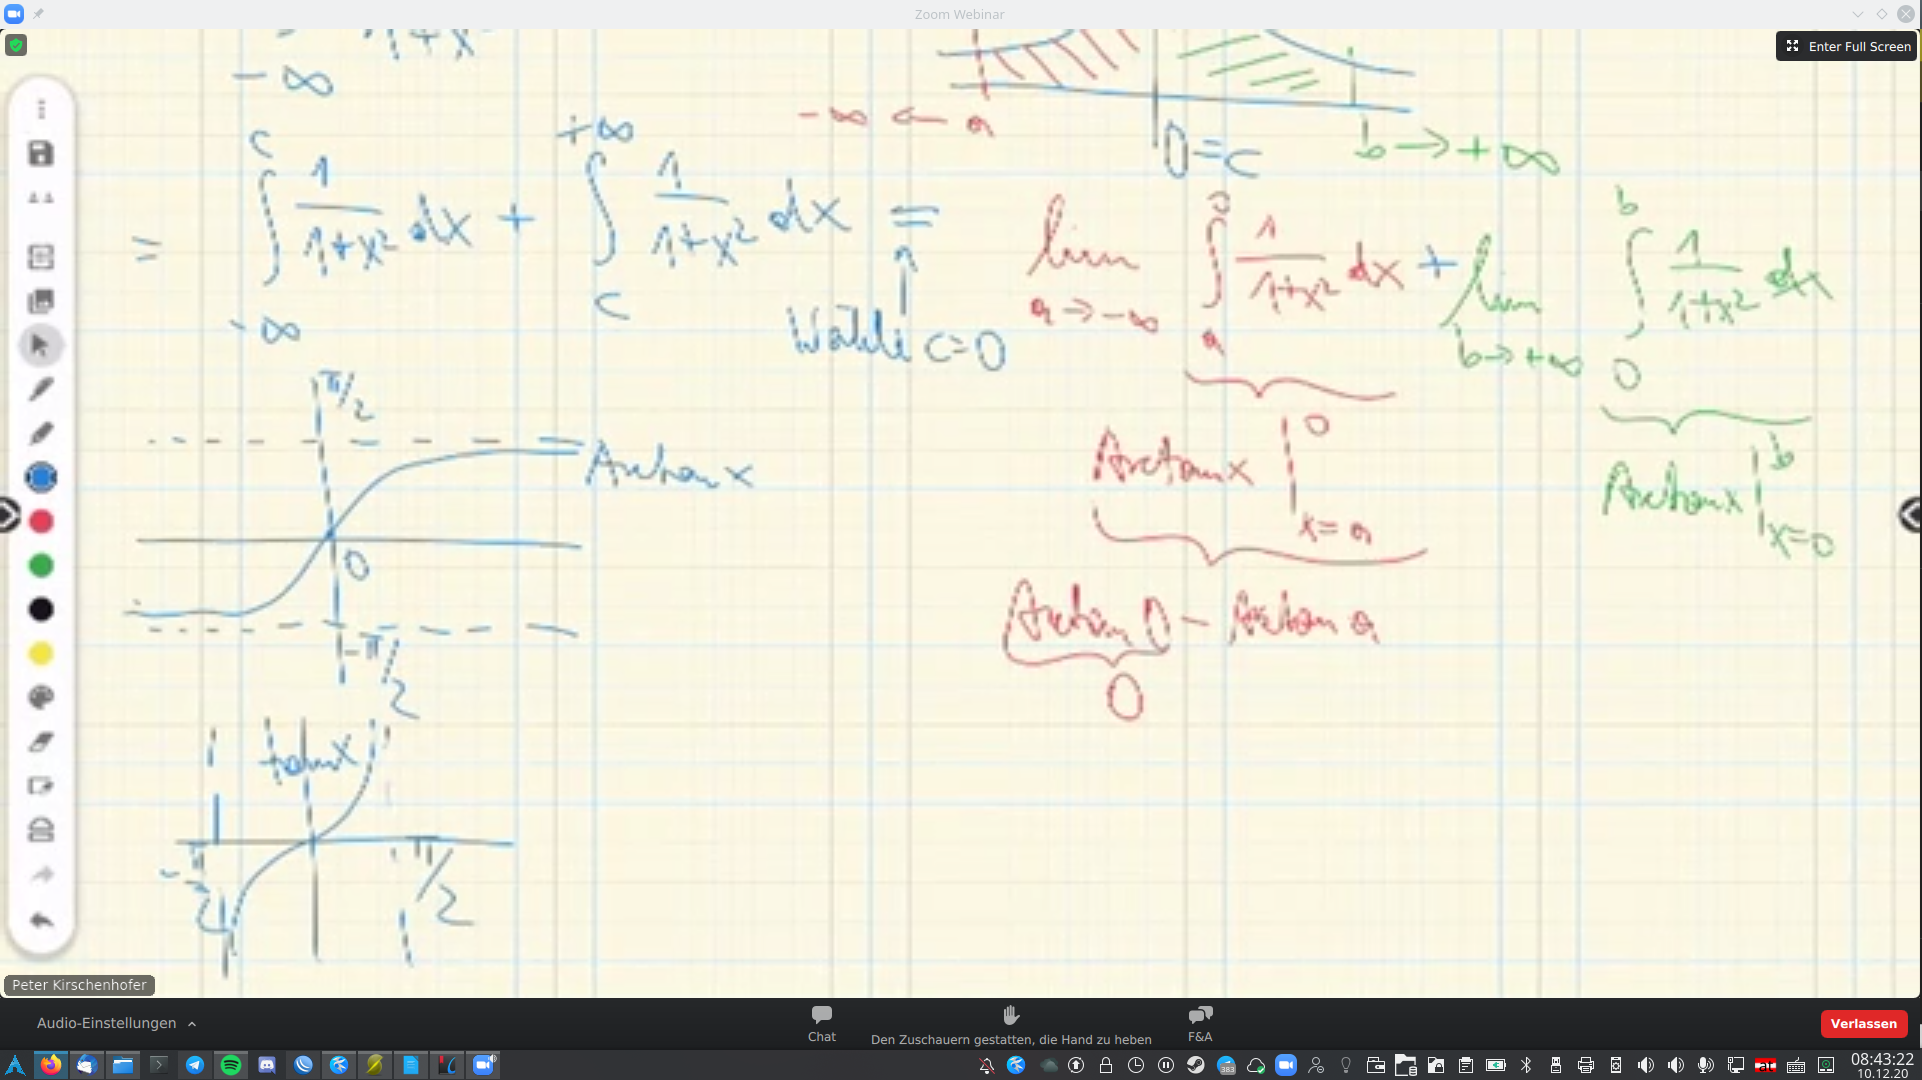 Zoom Webinar
Enter Full Screen
1+x²
-∞
-∞ ← a
0=c
b → +∞
= ∫_{-∞}^{c} 1/(1+x²) dx + ∫_{c}^{+∞} 1/(1+x²) dx = lim_{a→-∞} ∫_{a}^{0} 1/(1+x²) dx + lim_{b→+∞} ∫_{0}^{b} 1/(1+x²) dx
Wähle c=0
π/2
Arctan x
0
-π/2
Arctan x |_{x=a}^{0}
Arctan x |_{x=0}^{b}
Arctan 0 - Arctan a
0
tan x
-π/2
π/2
Peter Kirschenhofer
Audio-Einstellungen
Chat
Den Zuschauern gestatten, die Hand zu heben
F&A
Verlassen
383
08:43:22
10.12.20